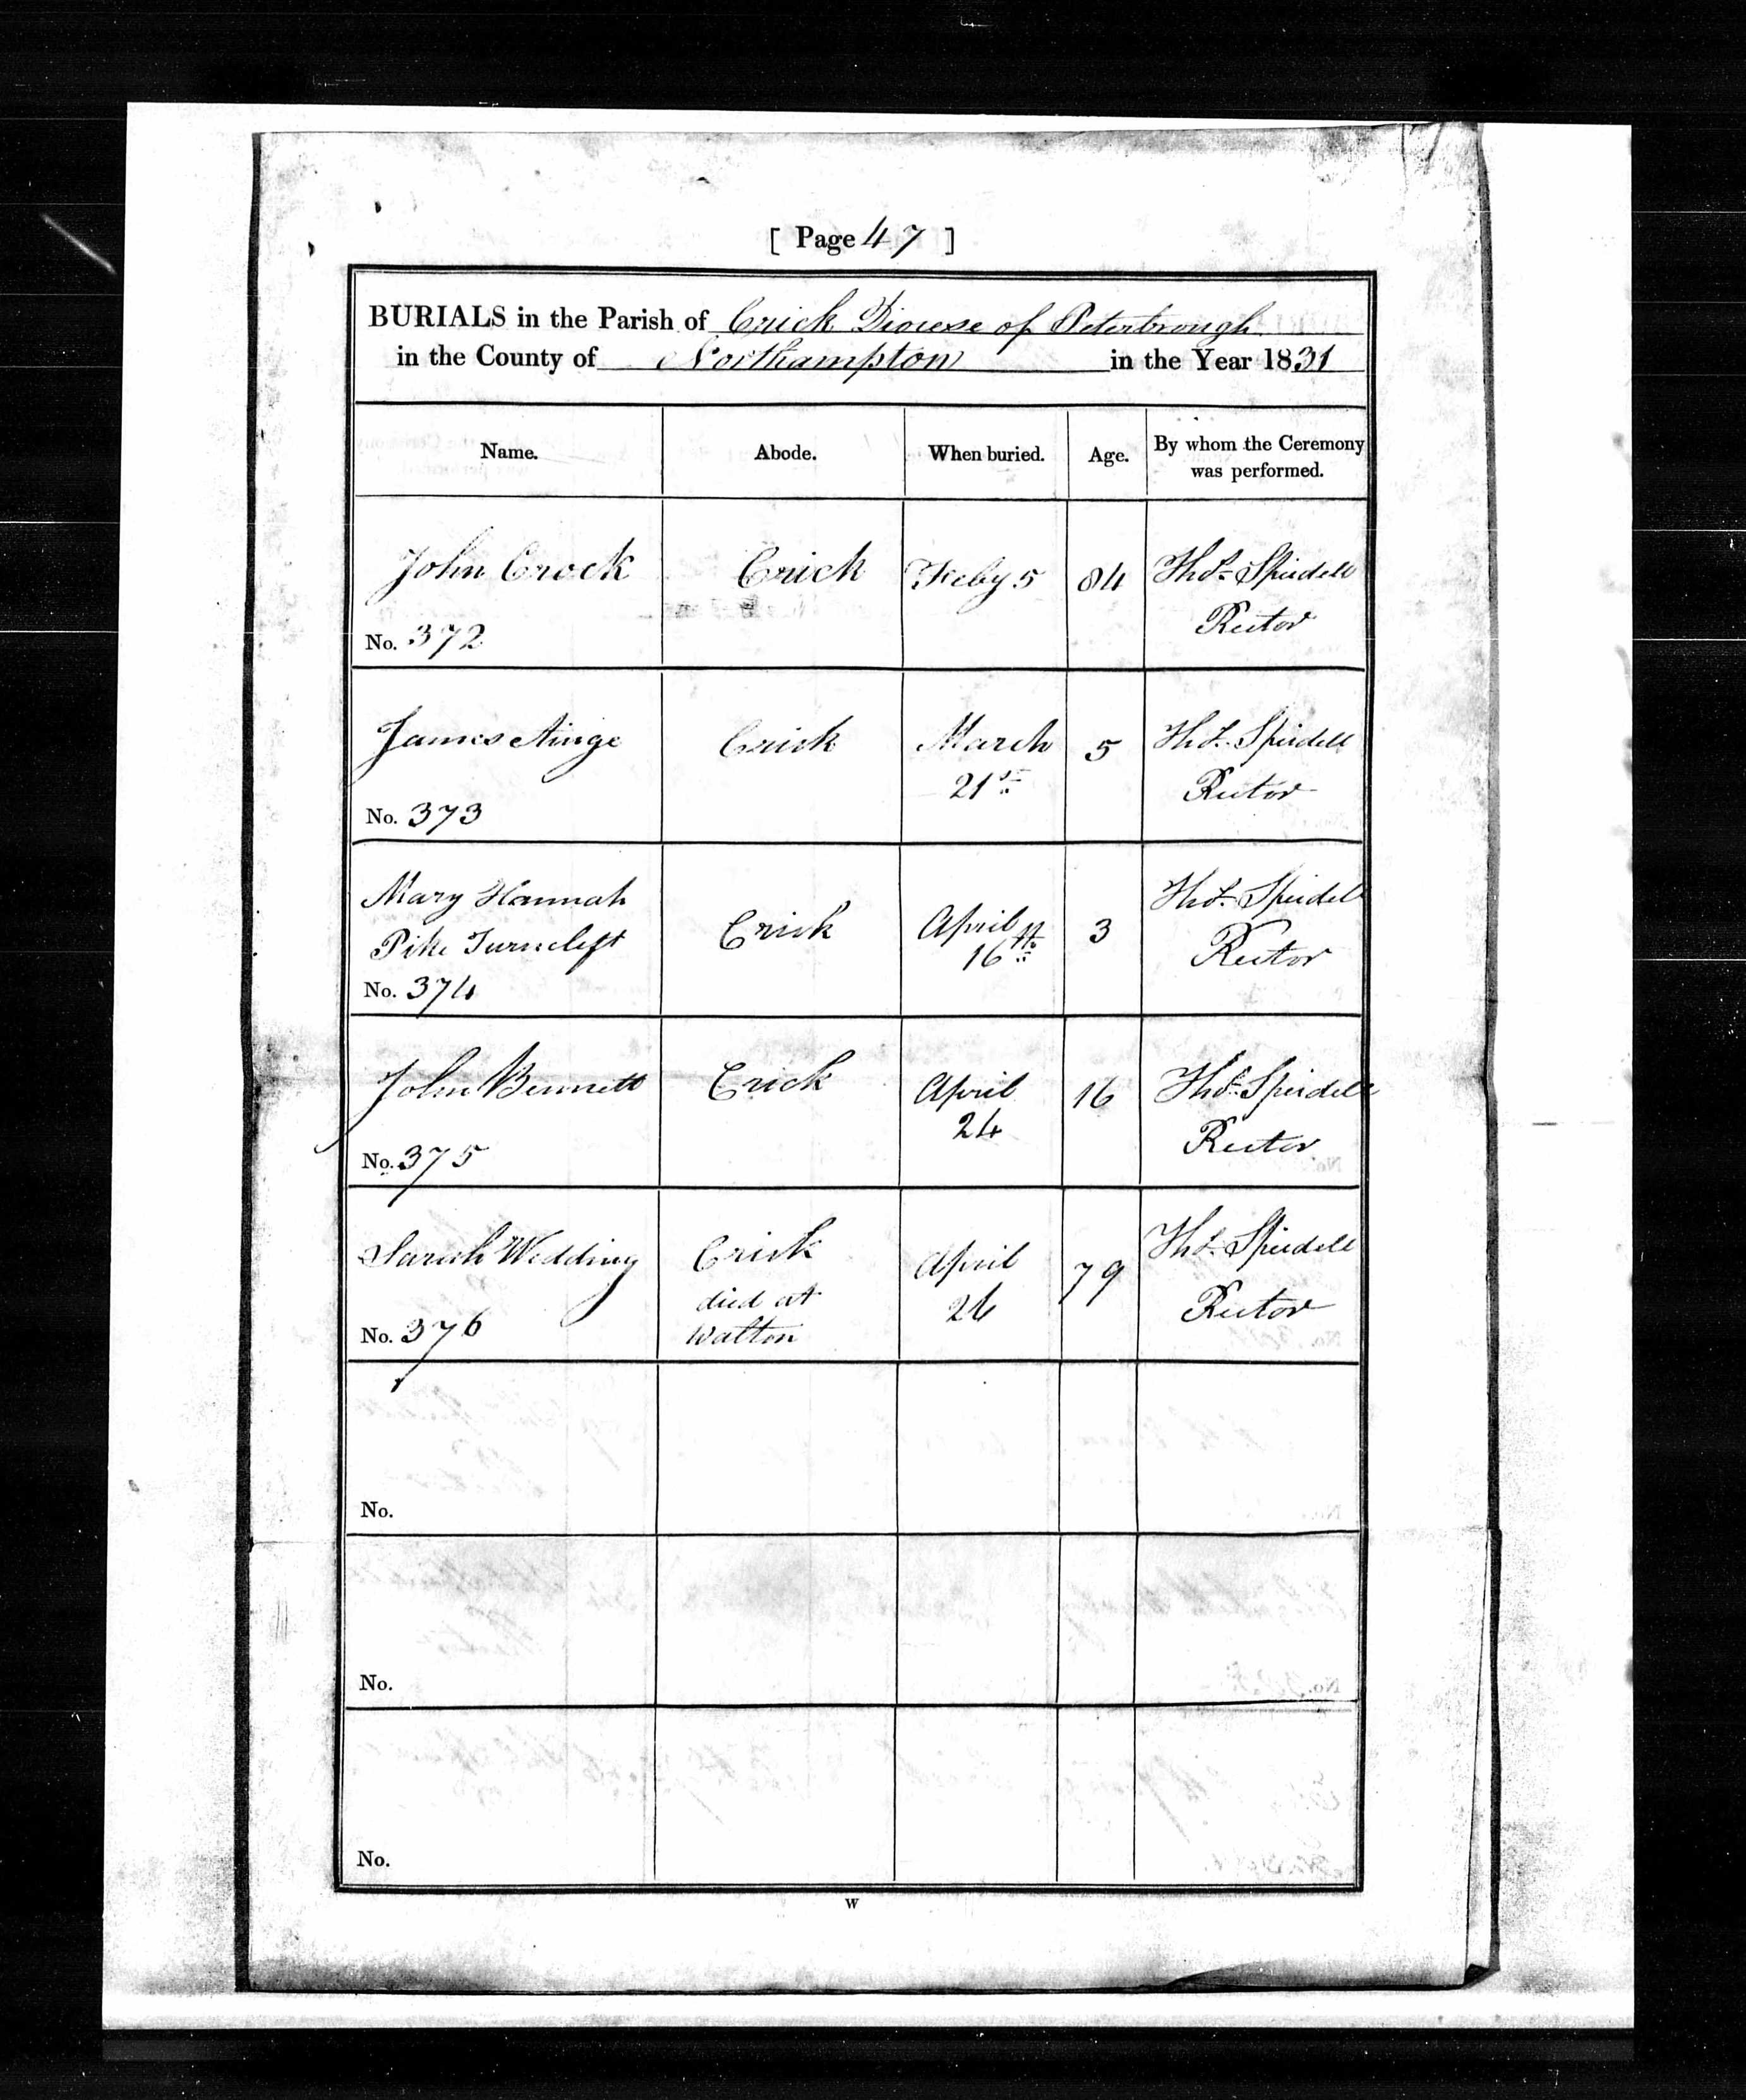 [ Page 47 ]
BURIALS in the Parish of Crick Diocese of Peterbrough
in the County of Northampton in the Year 1831
Name. Abode. When buried. Age. By whom the Ceremony was performed.
John Crock Crick Feby 5 84 Thos. Spidell
Rector
No. 372
James Ainge Crick March 5 Thos. Spidell
21st Rector
No. 373
Mary Hannah Thos. Spidell
Pike Turncliff Crick April 3 Rector
16th
No. 374
John Bennett Crick April 16 Thos. Spidell
24 Rector
No. 375
Sarah Wedding Crick April 79 Thos. Spidell
died at 26 Rector
No. 376 Walton
No.
No.
No.
W